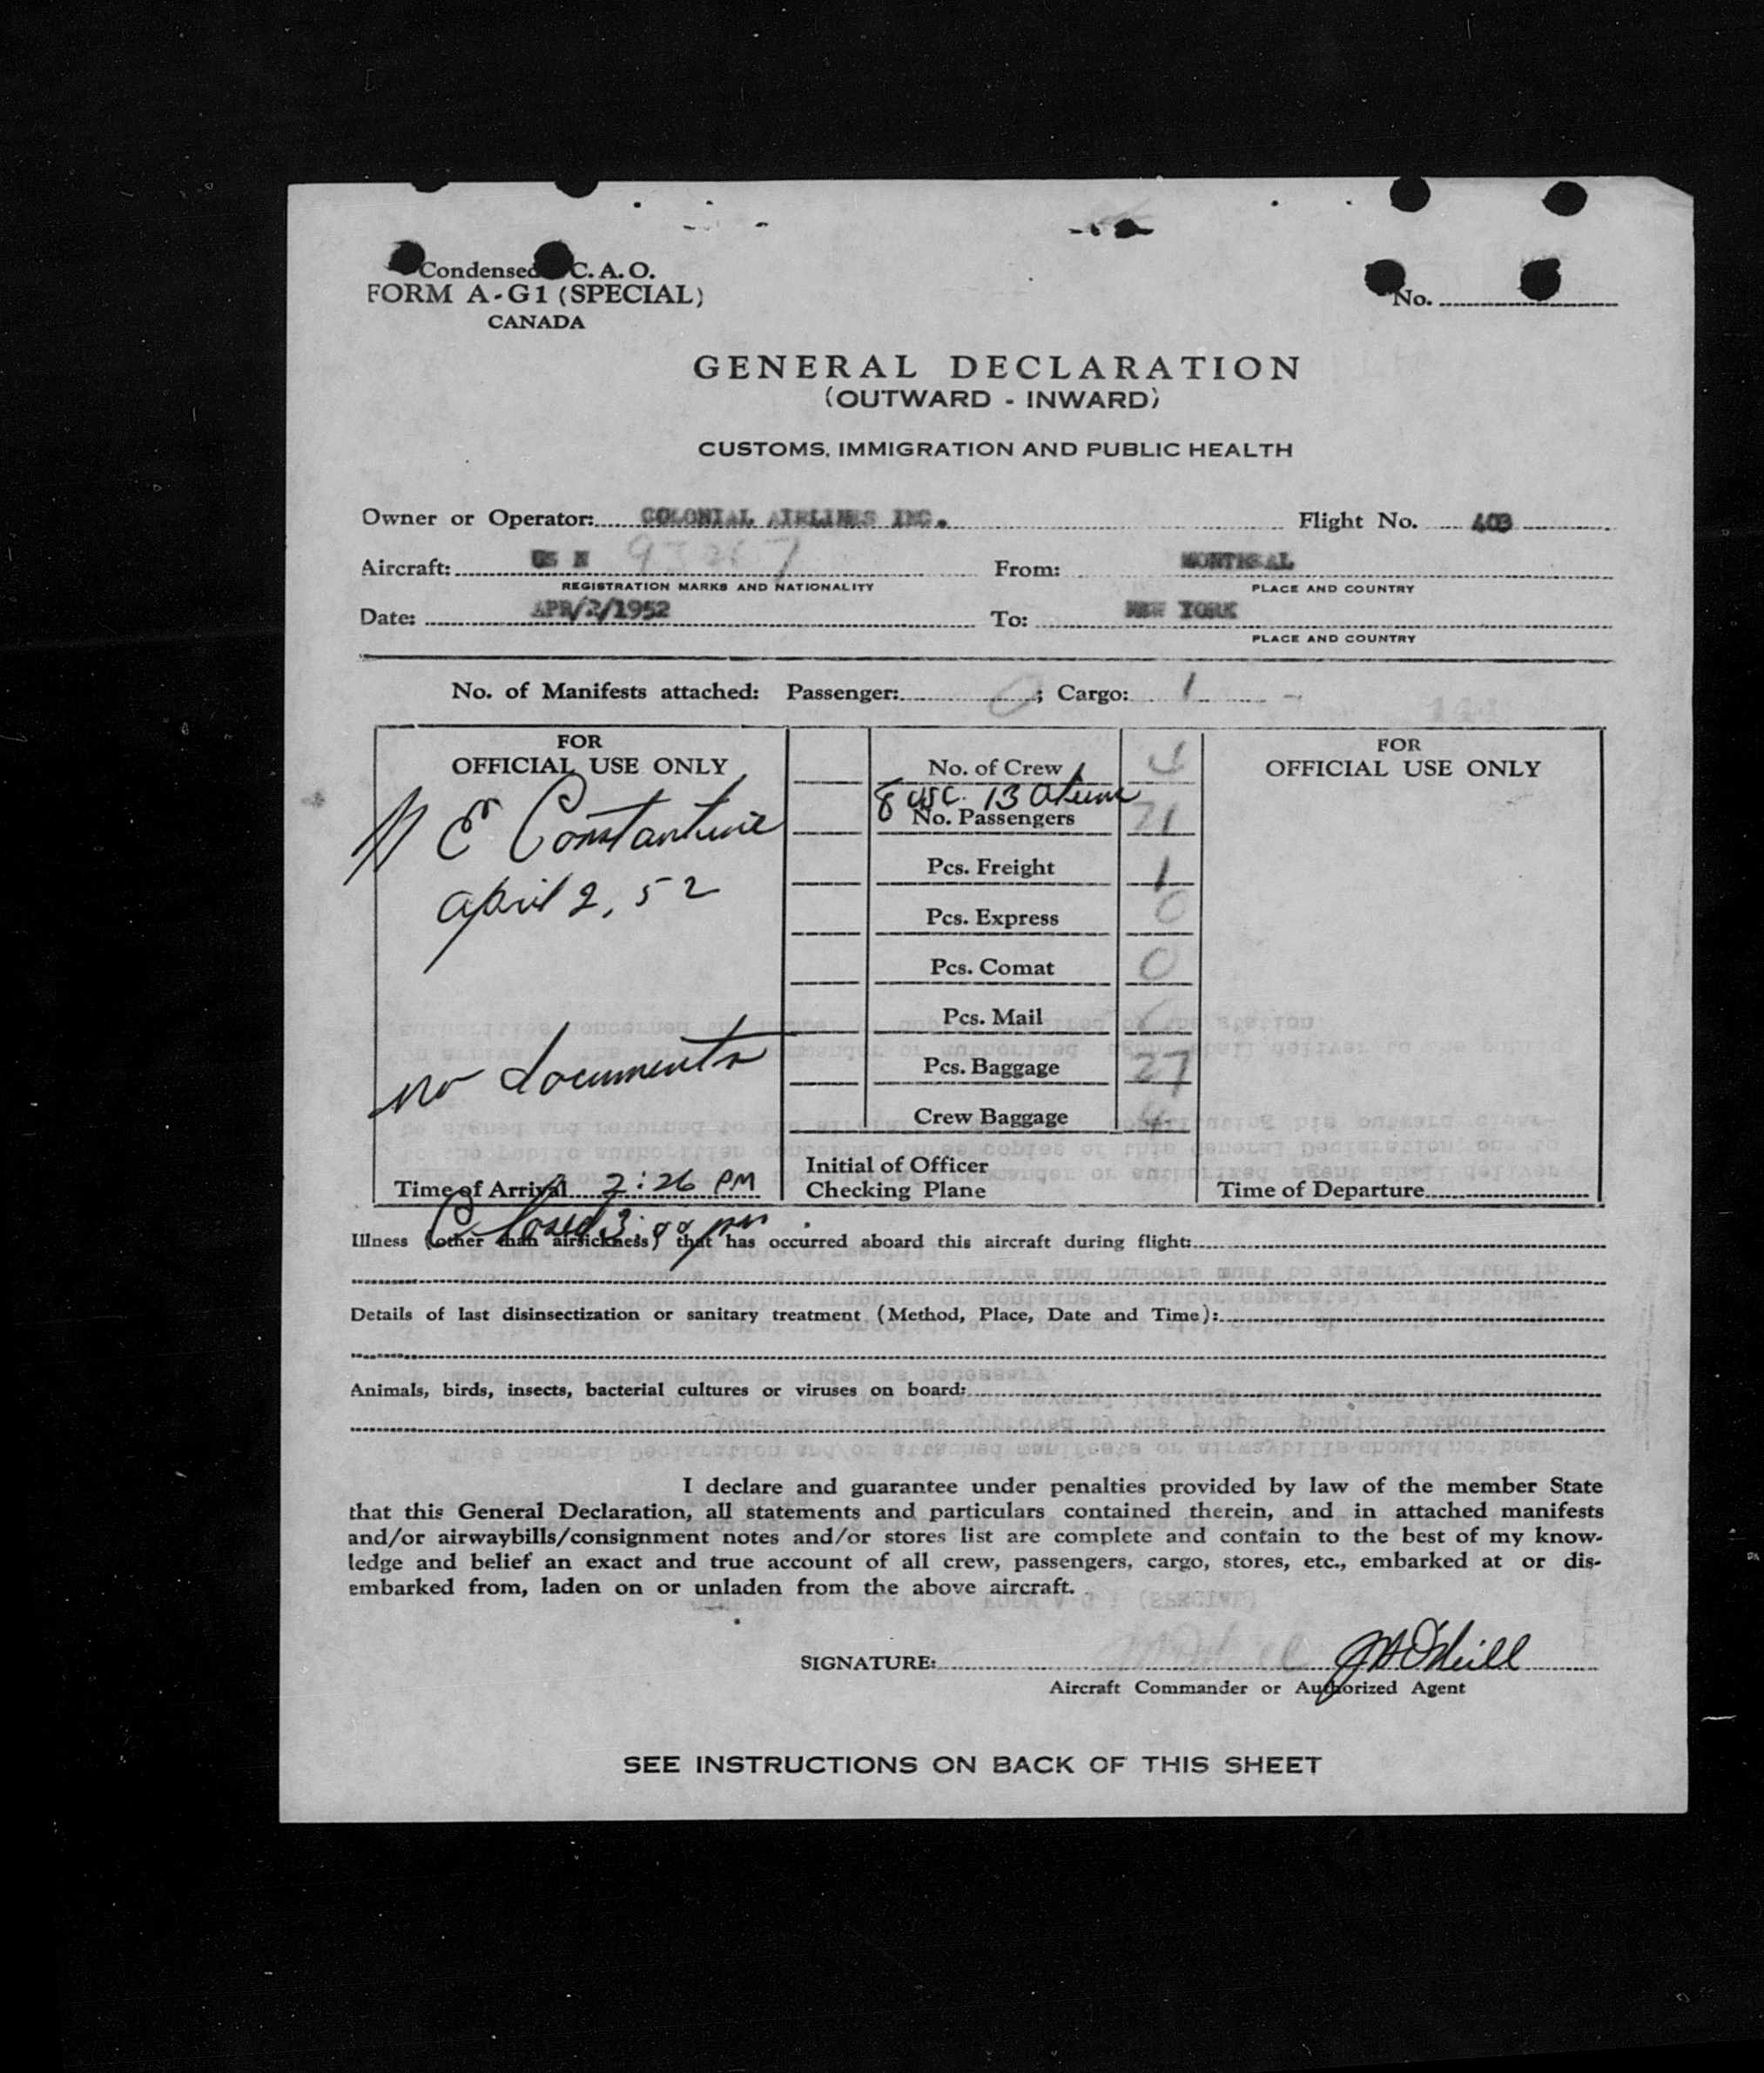 Condensed C. A. O.
FORM A-G1 (SPECIAL)
CANADA
No.
GENERAL DECLARATION
(OUTWARD - INWARD)
CUSTOMS, IMMIGRATION AND PUBLIC HEALTH
Owner or Operator: COLONIAL AIRLINES INC. Flight No. 403
Aircraft: US N From: MONTREAL
REGISTRATION MARKS AND NATIONALITY PLACE AND COUNTRY
Date: APR/2/1952 To: NEW YORK
PLACE AND COUNTRY
No. of Manifests attached: Passenger: 0; Cargo: 1
FOR
OFFICIAL USE ONLY
E Constantine
April 2, 52
No documents
Time of Arrival 2:26 PM
Closed 3:00 pm
No. of Crew
8 USC. 13 Aliens
No. Passengers 21
Pcs. Freight 1
Pcs. Express 0
Pcs. Comat 0
Pcs. Mail
Pcs. Baggage 27
Crew Baggage 4
Initial of Officer
Checking Plane
FOR
OFFICIAL USE ONLY
Time of Departure
Illness (other than airsickness) that has occurred aboard this aircraft during flight:
Details of last disinsectization or sanitary treatment (Method, Place, Date and Time):
Animals, birds, insects, bacterial cultures or viruses on board:
I declare and guarantee under penalties provided by law of the member State
that this General Declaration, all statements and particulars contained therein, and in attached manifests
and/or airwaybills/consignment notes and/or stores list are complete and contain to the best of my know-
ledge and belief an exact and true account of all crew, passengers, cargo, stores, etc., embarked at or dis-
embarked from, laden on or unladen from the above aircraft.
SIGNATURE: O'Neill
Aircraft Commander or Authorized Agent
SEE INSTRUCTIONS ON BACK OF THIS SHEET